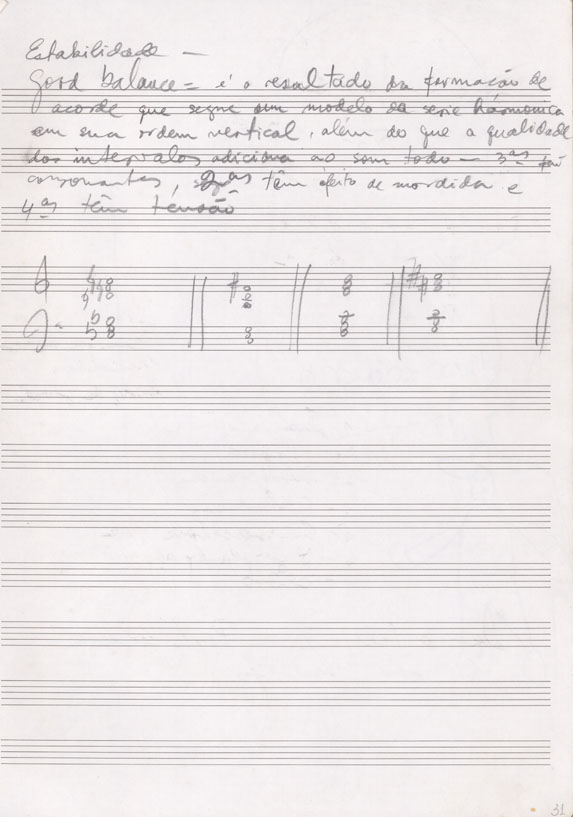 Estabilidade —
Good balance = é o resultado da formação de
acorde que segue um modelo da serie harmonica
em sua ordem vertical, além do que a qualidade
dos intervalos adiciona ao som todo — 3as são
consonantes, 2as têm efeito de mordida e
4as têm tensão
31